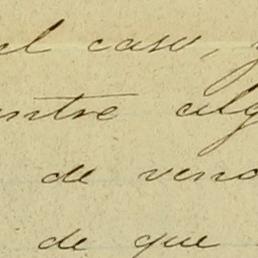 el caso, y
entre alg
de veno
de que